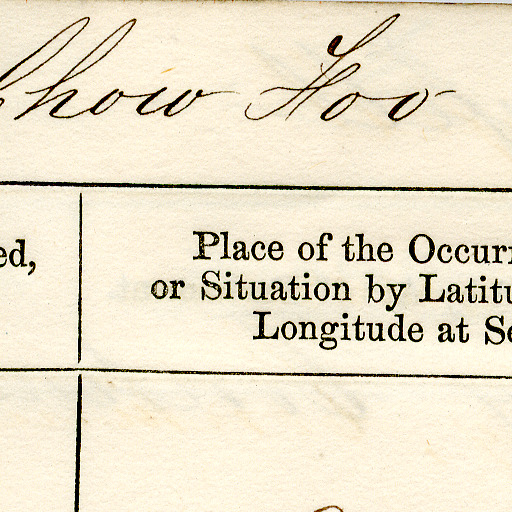 Chow Foo
ed,
Place of the Occurr
or Situation by Latitu
Longitude at Se